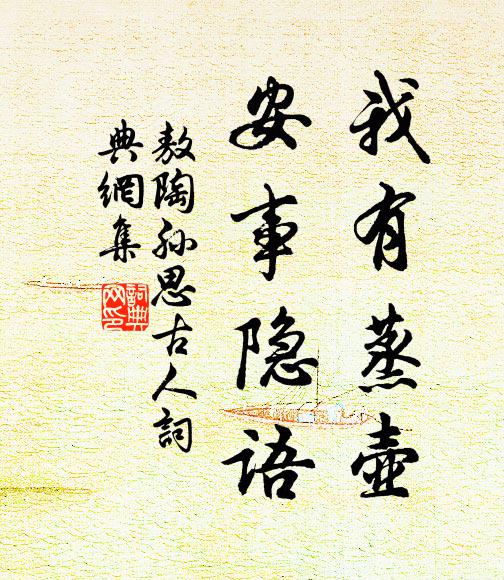 我有蒸壺
安事隐语
敖陶孙思古人詞
典網集
詞典
网印